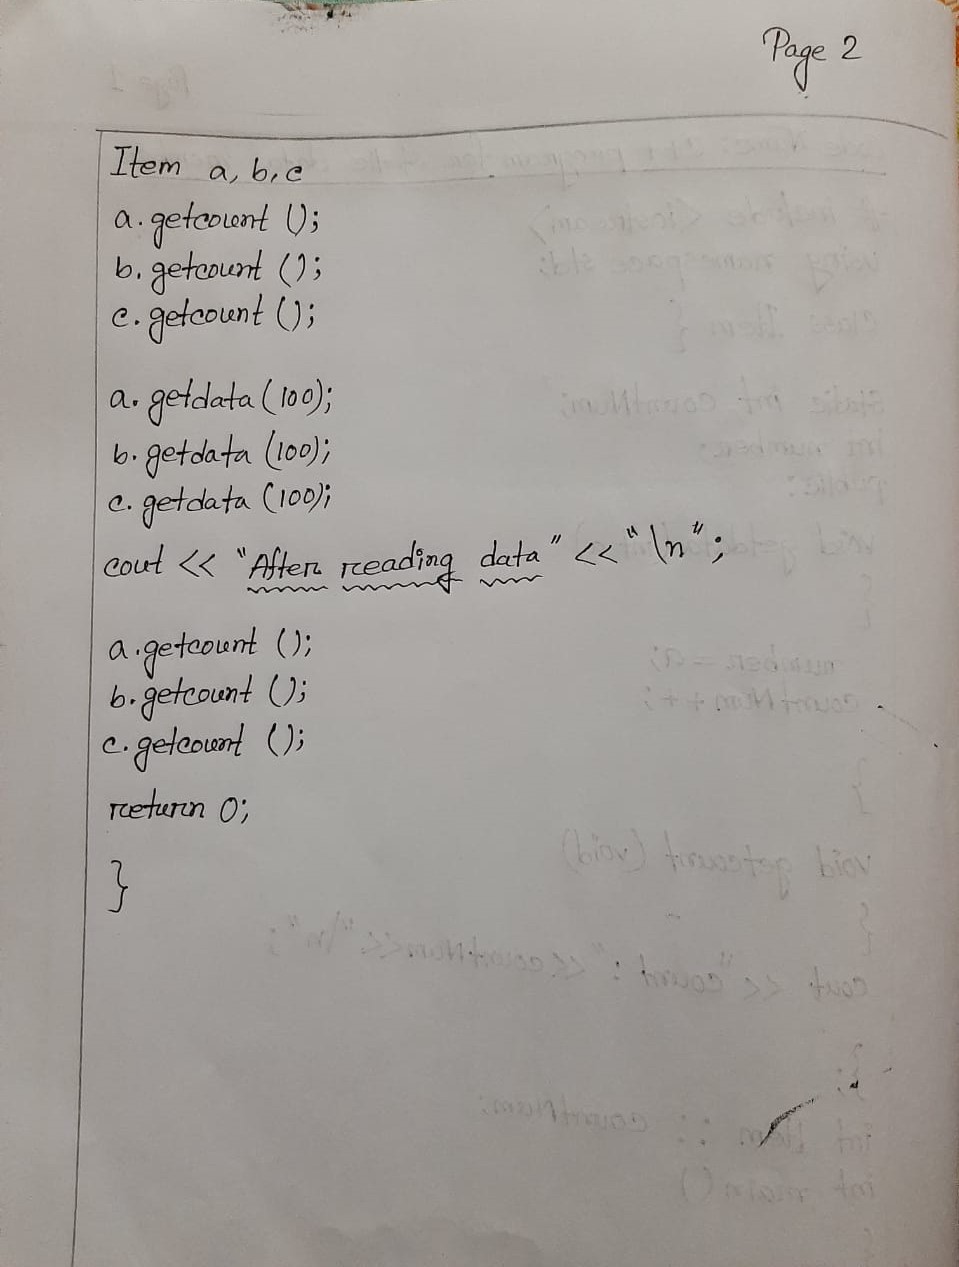 Page 2
Item a, b, c
a. getcount ();
b. getcount ();
c. getcount ();
a. getdata (100);
b. getdata (100);
c. getdata (100);
cout << "After reading data" << "\n";
a. getcount ();
b. getcount ();
c. getcount ();
return 0;
}